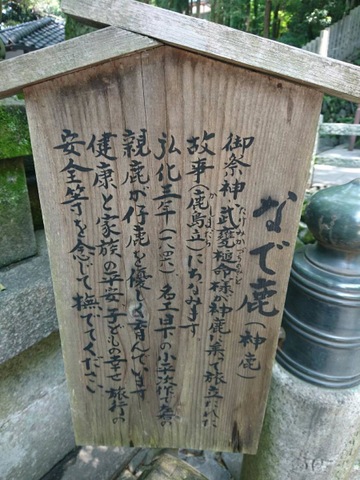 なで鹿（神鹿）
御祭神・武甕槌命様が神鹿に乗て旅立たれた
故事（鹿島立）にちなみます。
弘化三年（一八四六）、名工早の小平次作で左の
親鹿が仔鹿を優しく育んでいます
健康と家族の平安、子どもの幸せ、旅行の
安全等を念じて撫でてください